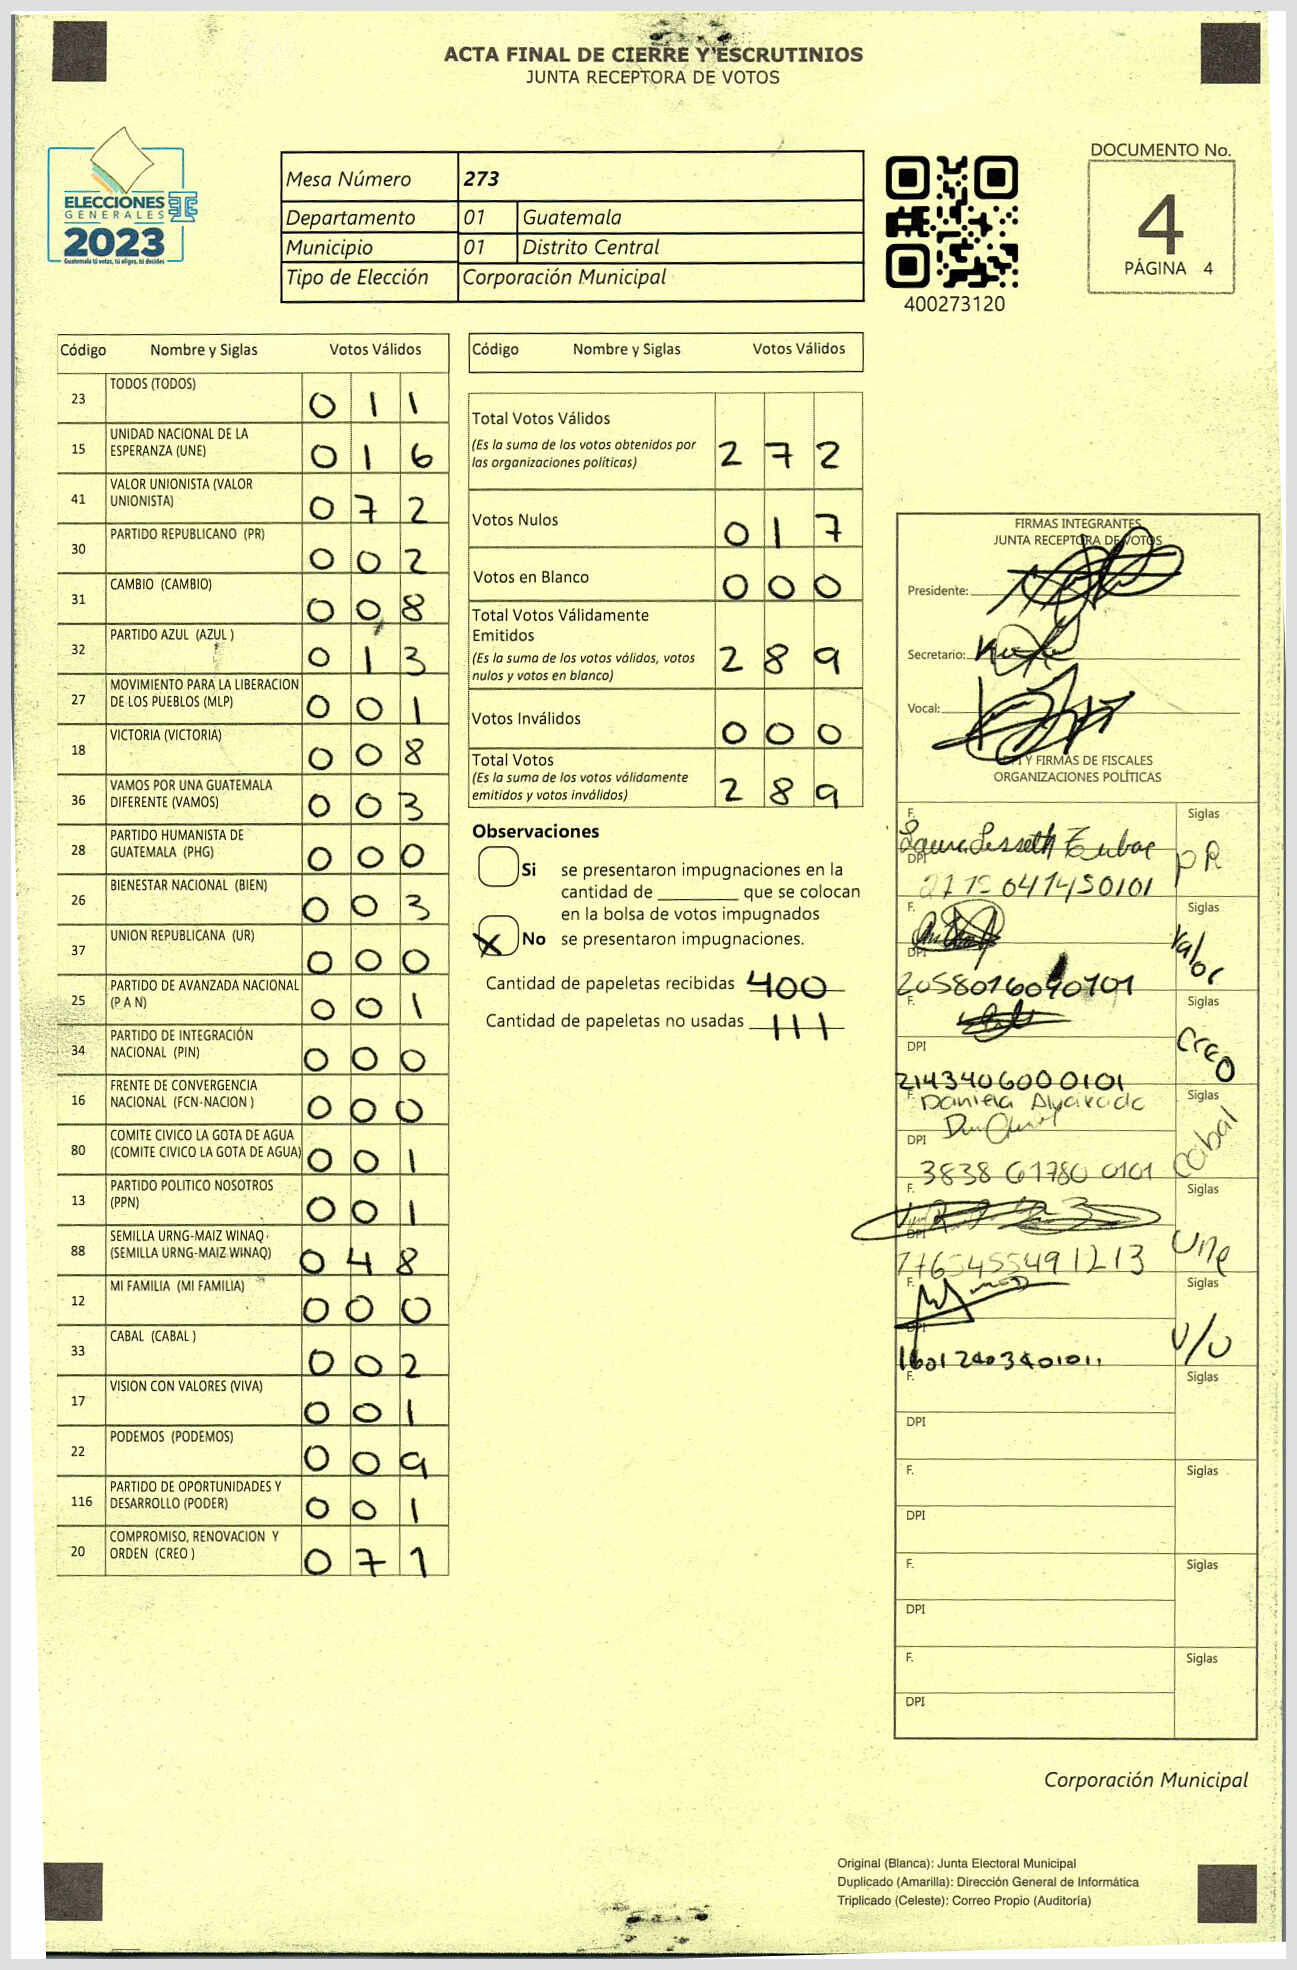 ACTA FINAL DE CIERRE Y ESCRUTINIOS
JUNTA RECEPTORA DE VOTOS
ELECCIONES
GENERALES
2023
Guatemala tú votas, tú eliges, tú decides
Mesa Número 273
Departamento 01 Guatemala
Municipio 01 Distrito Central
Tipo de Elección Corporación Municipal
400273120
DOCUMENTO No.
4
PÁGINA 4
Código Nombre y Siglas Votos Válidos
23 TODOS (TODOS) 0 1 1
15 UNIDAD NACIONAL DE LA
ESPERANZA (UNE) 0 1 6
41 VALOR UNIONISTA (VALOR
UNIONISTA) 0 7 2
30 PARTIDO REPUBLICANO (PR) 0 0 2
31 CAMBIO (CAMBIO) 0 0 8
32 PARTIDO AZUL (AZUL ) 0 1 3
27 MOVIMIENTO PARA LA LIBERACION
DE LOS PUEBLOS (MLP) 0 0 1
18 VICTORIA (VICTORIA) 0 0 8
36 VAMOS POR UNA GUATEMALA
DIFERENTE (VAMOS) 0 0 3
28 PARTIDO HUMANISTA DE
GUATEMALA (PHG) 0 0 0
26 BIENESTAR NACIONAL (BIEN) 0 0 3
37 UNION REPUBLICANA (UR) 0 0 0
25 PARTIDO DE AVANZADA NACIONAL
(P A N) 0 0 1
34 PARTIDO DE INTEGRACIÓN
NACIONAL (PIN) 0 0 0
16 FRENTE DE CONVERGENCIA
NACIONAL (FCN-NACION ) 0 0 0
80 COMITE CIVICO LA GOTA DE AGUA
(COMITE CIVICO LA GOTA DE AGUA) 0 0 1
13 PARTIDO POLITICO NOSOTROS
(PPN) 0 0 1
88 SEMILLA URNG-MAIZ WINAQ
(SEMILLA URNG-MAIZ WINAQ) 0 4 8
12 MI FAMILIA (MI FAMILIA) 0 0 0
33 CABAL (CABAL ) 0 0 2
17 VISION CON VALORES (VIVA) 0 0 1
22 PODEMOS (PODEMOS) 0 0 9
116 PARTIDO DE OPORTUNIDADES Y
DESARROLLO (PODER) 0 0 1
20 COMPROMISO, RENOVACION Y
ORDEN (CREO ) 0 7 1
Código Nombre y Siglas Votos Válidos
Total Votos Válidos
(Es la suma de los votos obtenidos por
las organizaciones políticas) 2 7 2
Votos Nulos 0 1 7
Votos en Blanco 0 0 0
Total Votos Válidamente
Emitidos
(Es la suma de los votos válidos, votos
nulos y votos en blanco) 2 8 9
Votos Inválidos 0 0 0
Total Votos
(Es la suma de los votos válidamente
emitidos y votos inválidos) 2 8 9
Observaciones
Si se presentaron impugnaciones en la
cantidad de ________ que se colocan
en la bolsa de votos impugnados
X No se presentaron impugnaciones.
Cantidad de papeletas recibidas 400
Cantidad de papeletas no usadas 111
FIRMAS INTEGRANTES
JUNTA RECEPTORA DE VOTOS
Presidente:
Secretario:
Vocal:
DPI Y FIRMAS DE FISCALES
ORGANIZACIONES POLÍTICAS
F. Siglas
DPI PR
F. Siglas
DPI Valor
F. Siglas
DPI CREO
2143406000101
F. Daniela Alvarado Siglas
DPI Cabal
3838 61780 0101
F. Siglas
DPI Une
F. Siglas
DPI V/U
F. Siglas
DPI
F. Siglas
DPI
F. Siglas
DPI
F. Siglas
DPI
Corporación Municipal
Original (Blanca): Junta Electoral Municipal
Duplicado (Amarilla): Dirección General de Informática
Triplicado (Celeste): Correo Propio (Auditoría)